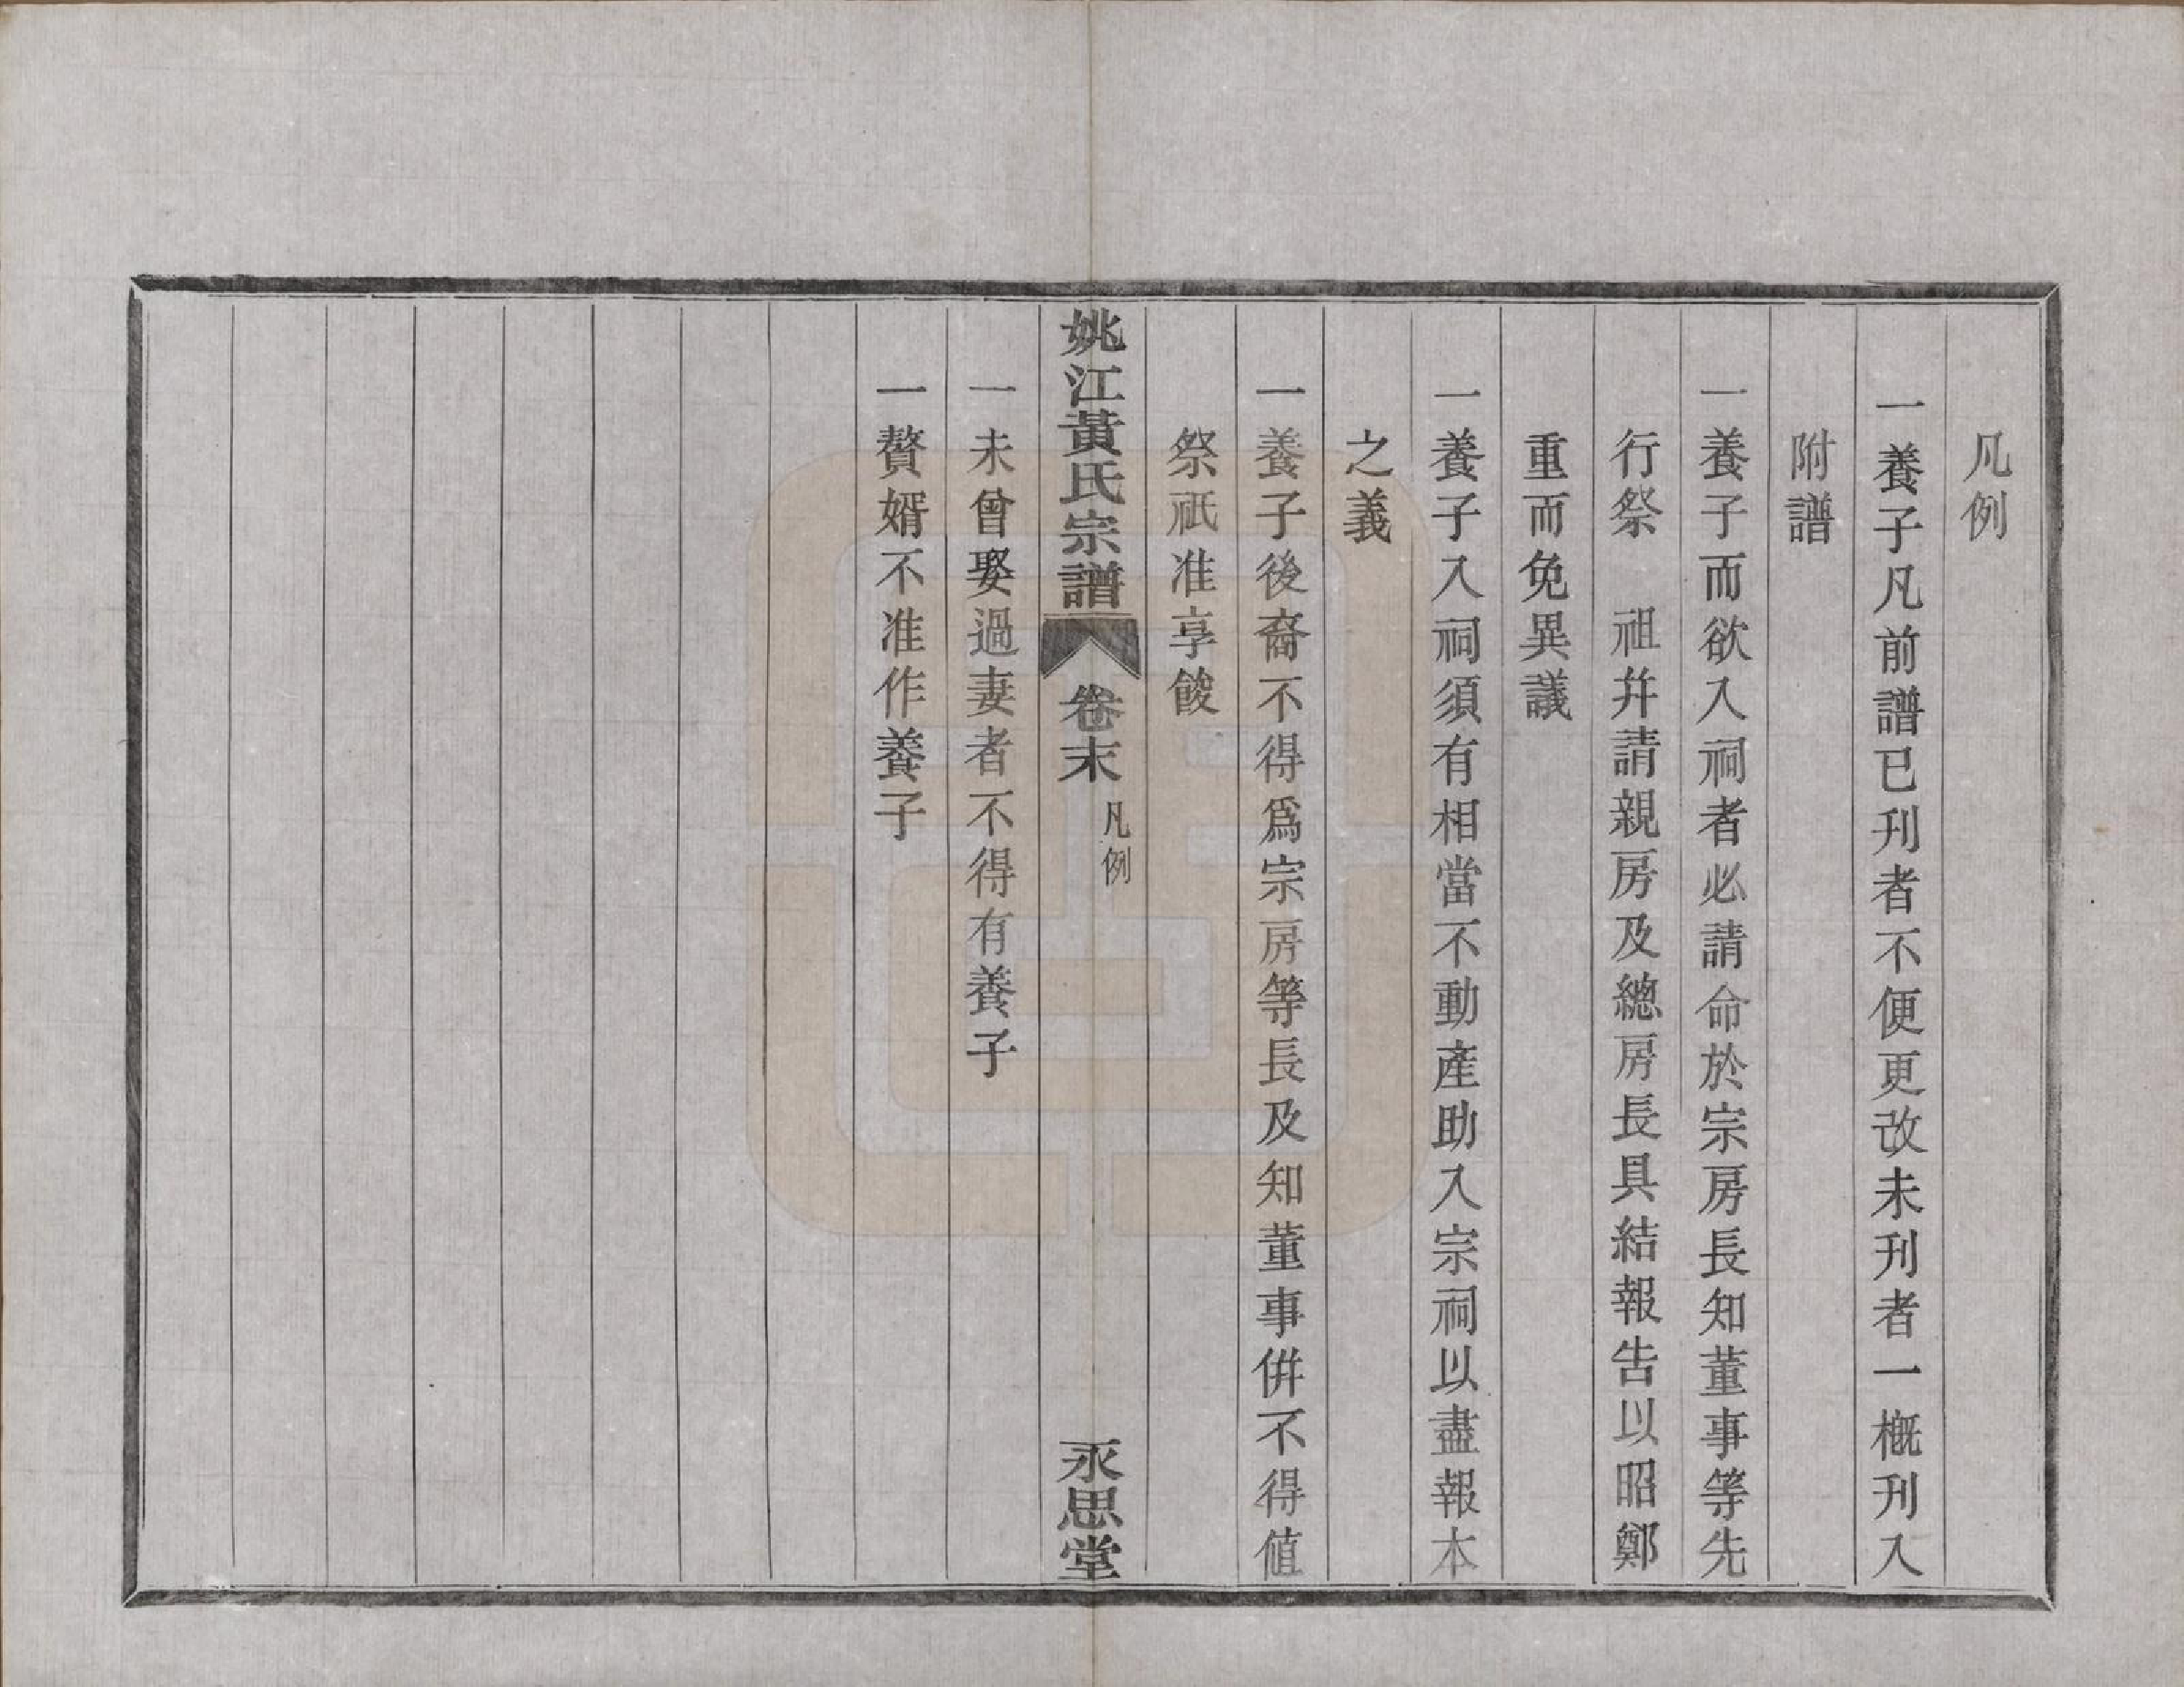 凡例
一養子凡前譜已刊者不便更改未刊者一概刊入
附譜
一養子而欲入祠者必請命於宗房長知董事等先
行祭　祖幷請親房及總房長具結報告以昭鄭
重而免異議
一養子入祠須有相當不動產助入宗祠以盡報本
之義
一養子後裔不得爲宗房等長及知董事併不得值
祭祇准享餕
姚江黃氏宗譜　卷末　凡例　永思堂
一未曾娶過妻者不得有養子
一贅婿不准作養子